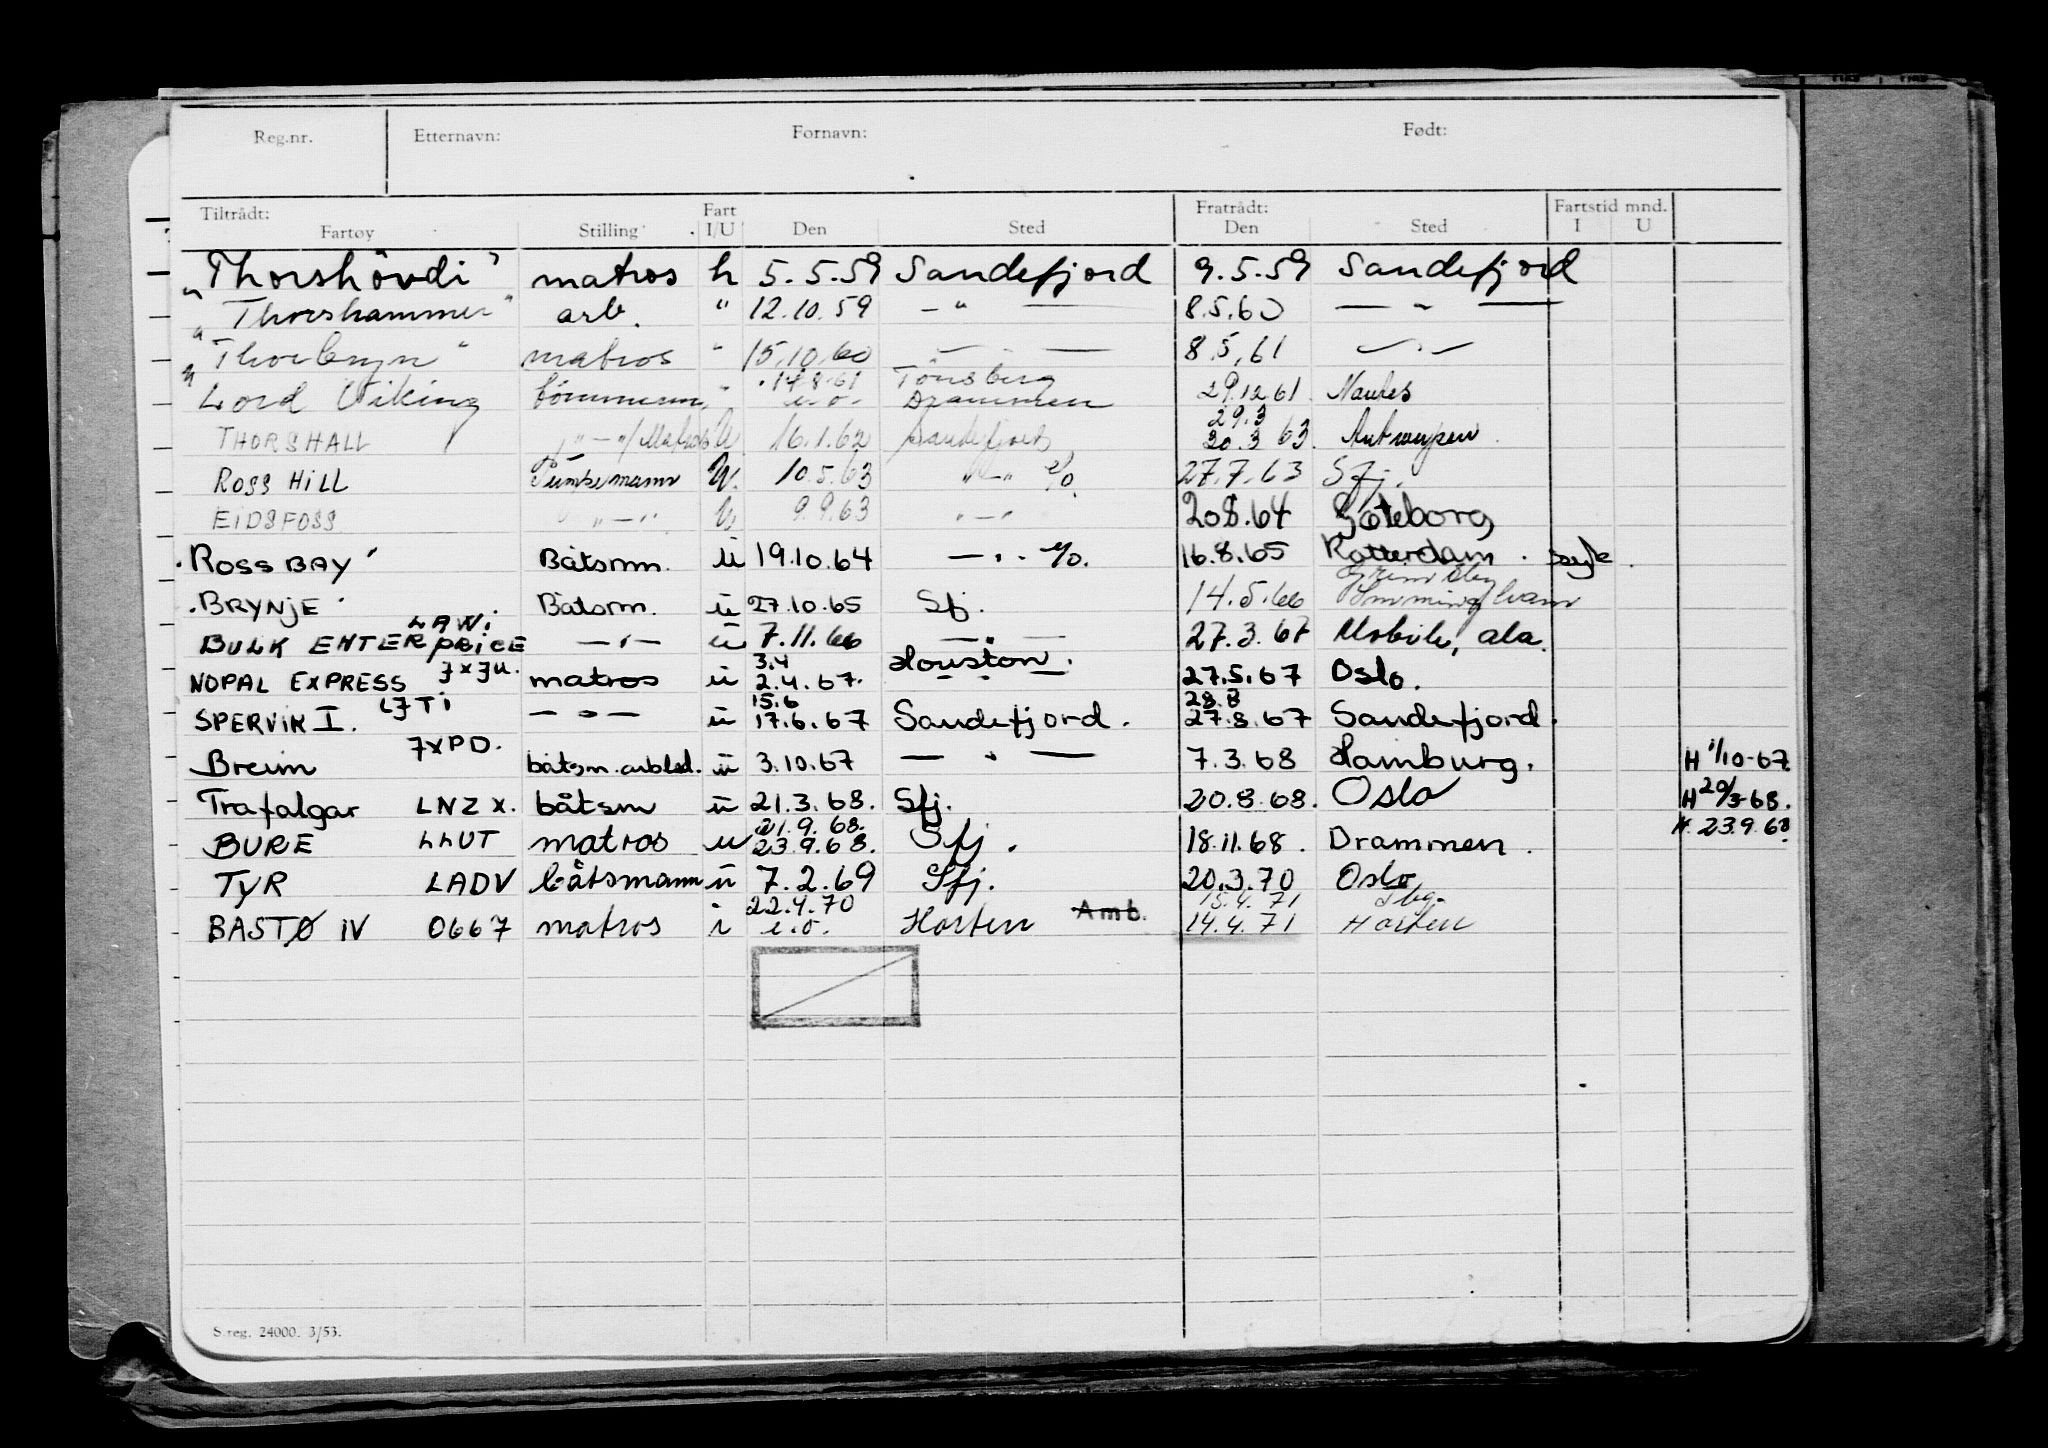 Reg.nr. Etternavn: Fornavn: Født:
Tiltrådt: Fart Fratrådt: Fartstid mnd.
Fartøy Stilling I/U Den Sted Den Sted I U
"Thorshövdi" matros h 5.5.59 Sandefjord 9.5.59 Sandefjord
"Thorshammer" arb. " 12.10.59 — " — 8.5.60 — " —
"Thorbryn" matros " 15.10.60 — " — 8.5.61 — " —
14.8.61 Tönsberg
"Lord Viking tömmerm. " u.o. Drammen 29.12.61 Nantes
29.3
THORSHALL — " — / Matros U 16.1.62 Sandefjord 30.3 63. Antwerpen
ROSS HILL Tümmermann U. 10.5.63 " — " e/o. 27.7.63 Sfj.
EIDSFOSS " — " U. 9.9.63 " — " 20.8.64 Göteborg
"ROSS BAY" Båtsm. ü 19.10.64 — " . e/o. 16.8.65 Rotterdam . syk.
"BRYNJE" Båtsm. ü 27.10.65 Sfj. 14.5.66 Immingham
LAWI
BULK ENTERPRICE — " — ü 7.11.66 — " — 27.3.67 Mobile, ala.
3.4
NOPAL EXPRESS JXJU. matros ü 2.4.67. Houston. 27.5.67 Oslo.
LJTI 15.6 28.8
SPERVIK I. — " — ü 17.6.67 Sandefjord. 27.8.67 Sandefjord.
JXPD.
Breim båtsm. arbled. ü 3.10.67 — " — 7.3.68 Hamburg. H 1/10-67.
Trafalgar LNZX. båtsm ü 21.3.68. Sfj. 20.8.68. Oslo H 20/3-68.
21.9.68. H. 23.9.68
BURE LLUT matros u 23.9.68. Sfj. 18.11.68. Drammen.
TYR LADV båtsmann ü 7.2.69 Sfj. 20.3.70 Oslo
22.4.70 15.4.71 Tbg.
BASTØ IV 0667 matros i e.o. Horten Amb. 14.4.71 Horten
S.reg. 24000. 3/53.